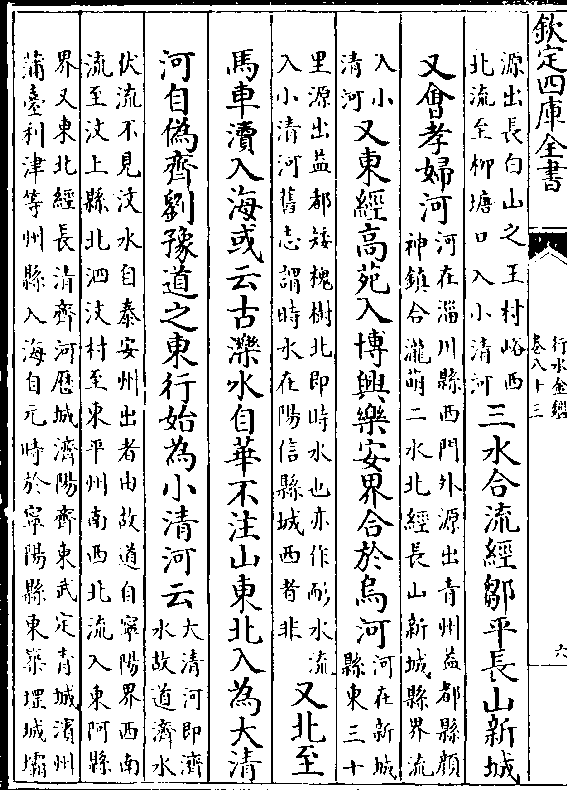 欽定四庫全書
行水金鑑
卷八十三
六
源出長白山之王村峪西
北流至柳塘口入小清河
三水合流經鄒平長山新城
又會孝婦河
河在淄川縣西門外源出青州益都縣顏
神鎮合瀧萌二水北經長山新城縣界流
入小
清河
又東經高苑入博興樂安界合於烏河
河在新城
縣東三十
里源出益都矮槐樹北即時水也亦作耏水流
入小清河舊志謂時水在陽信縣城西者非
又北至
馬車瀆入海或云古濼水自華不注山東北入為大清
河自偽齊劉豫道之東行始為小清河云
大清河即濟
水故道濟水
伏流不見汶水自泰安州出者由故道自寧陽界西南
流至汶上縣北泗汶村至東平州南西北流入東阿縣
界又東北經長清齊河歷城濟陽齊東武定青城濱州
蒲臺利津等州縣入海自元時於寧陽縣東築堽城壩